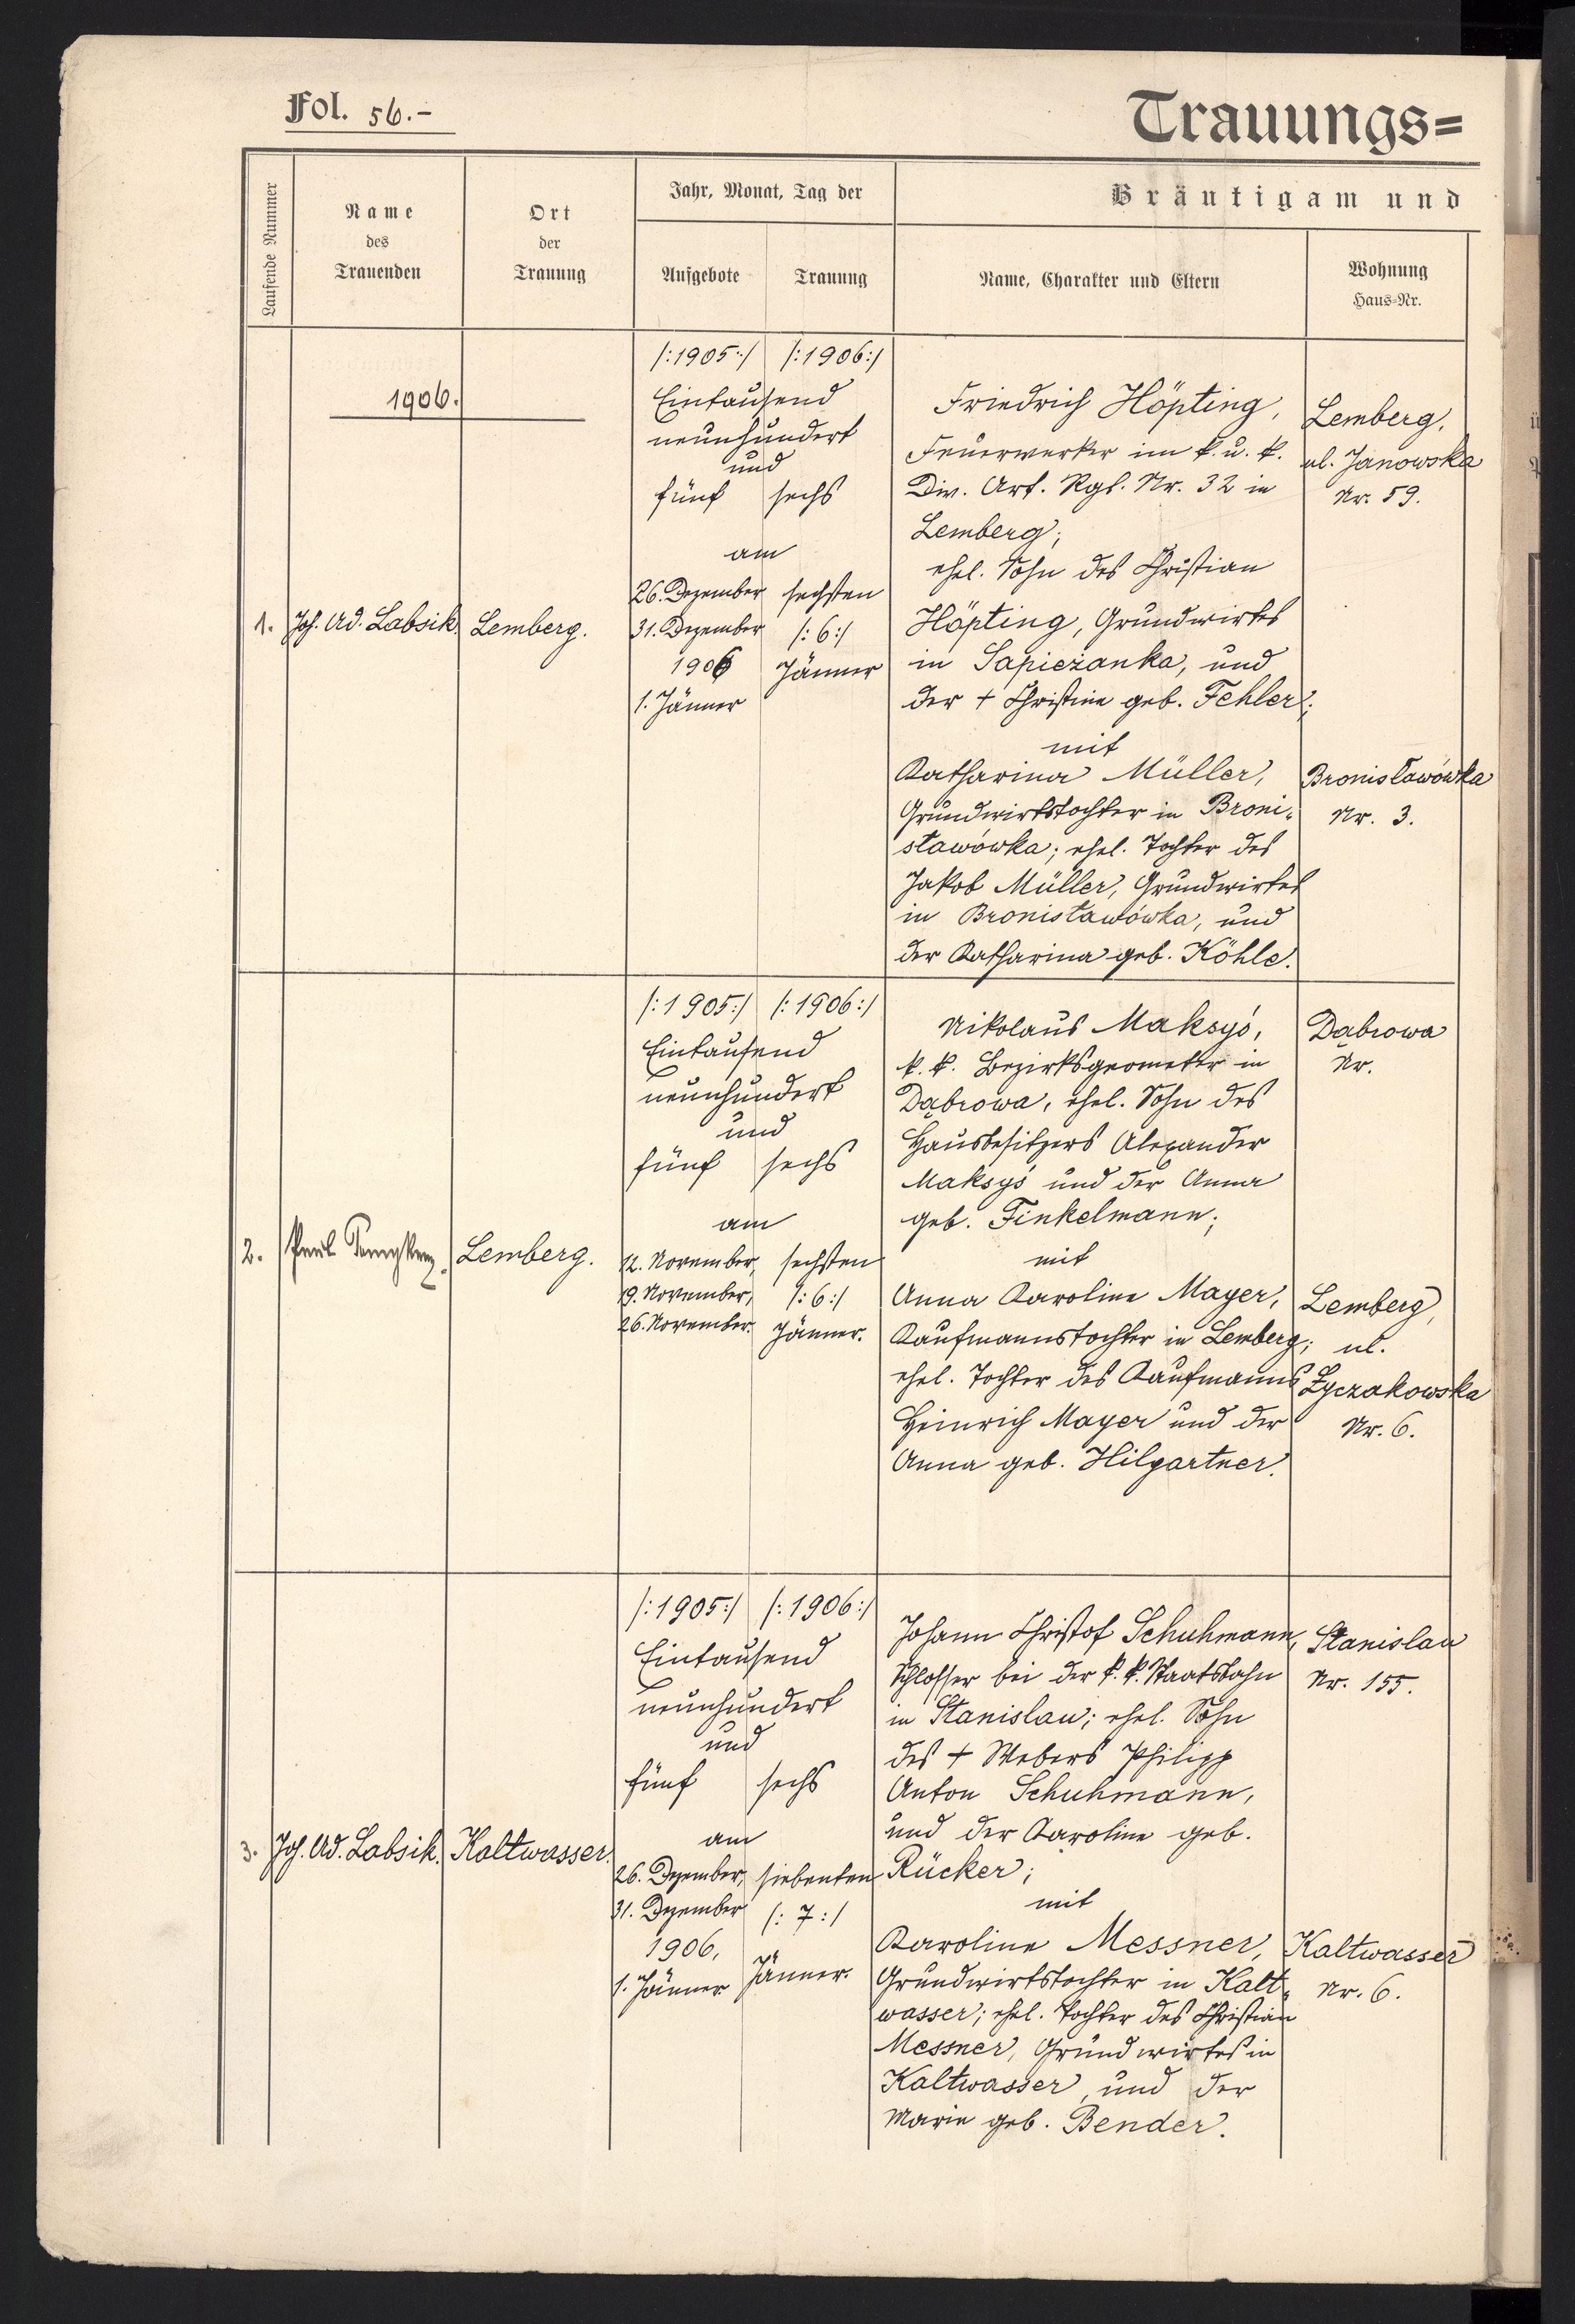 Fol. 56.-
Trauungs=
Laufende Nummer
Name
des
Trauenden
Ort
der
Trauung
Jahr, Monat, Tag der
Aufgebote
Trauung
Bräutigam und
Name, Charakter und Eltern
Wohnung
Haus-Nr.
1906.
1.
Joh. Ad. Labsik.
Lemberg.
/:1905:/ /:1906:/
Eintausend
neunhundert
und
fünf sechs
am
26. Dezember sechsten
31. Dezember /:6:/
1906 Jänner
1. Jänner
Friedrich Höpting,
Feuerwerker im k. u. k.
Div. Art. Rgt. Nr. 32 in
Lemberg;
ehel. Sohn des Christian
Höpting, Grundwirtes
in Sapieżanka, und
der + Christine geb. Fehler;
mit
Katharina Müller,
Grundwirtstochter in Broni-
sławówka; ehel. Tochter des
Jakob Müller, Grundwirtes
in Bronisławówka, und
der Katharina geb. Köhle.
Lemberg,
ul. Janowska
Nr. 59.
Bronisławówka
Nr. 3.
2.
Paul
Lemberg.
/:1905:/ /:1906:/
Eintausend
neunhundert
und
fünf sechs
am
12. November, sechsten
19. November, /:6:/
26. November. Jänner.
Nikolaus Maksyś,
k. k. Bezirksgeometer in
Dąbrowa, ehel. Sohn des
Hausbesitzers Alexander
Maksyś und der Anna
geb. Finkelmann;
mit
Anna Karoline Mayer,
Kaufmannstochter in Lemberg;
ehel. Tochter des Kaufmanns
Heinrich Mayer und der
Anna geb. Hilgartner.
Dąbrowa
Nr.
Lemberg,
ul.
Łyczakowska
Nr. 6.
3.
Joh. Ad. Labsik.
Kaltwasser.
/:1905:/ /:1906:/
Eintausend
neunhundert
und
fünf sechs
am
26. Dezember, siebenten
31. Dezember /:7:/
1906,
1. Jänner Jänner.
Johann Christof Schuhmann,
Schlosser bei der k. k. Staatsbahn
in Stanislau; ehel. Sohn
des + Webers Philipp
Anton Schuhmann,
und der Karoline geb.
Rücker;
mit
Karoline Messner,
Grundwirtstochter in Kalt-
wasser; ehel. Tochter des Christian
Messner, Grundwirtes in
Kaltwasser, und der
Marie geb. Bender.
Stanislau
Nr. 155.
Kaltwasser
Nr. 6.